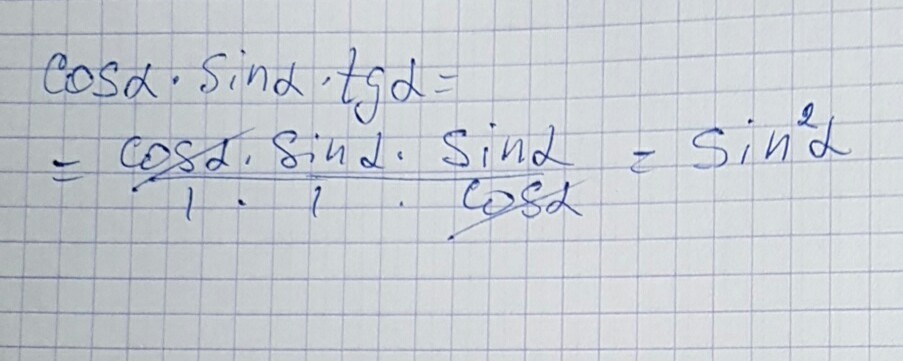 cosα · sinα · tgα =
= (cosα · sinα · sinα)/(1 · 1 · cosα) = sin²α